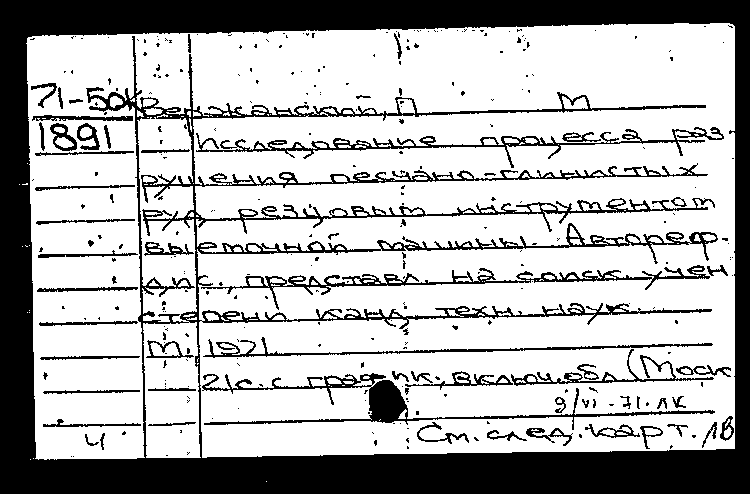 71-50к Вержанский, П М
1891 Исследование процесса раз-
рушения песчано-глинистых
руд резцовым инструментом
выемочной машины. Автореф.
дис., представл. на соиск. учен
степени канд. техн. наук.
М., 1971.
21с. с график.; включ.обл (Моск
9/VI-71. ЛК
ч См. след. карт. ЛВ